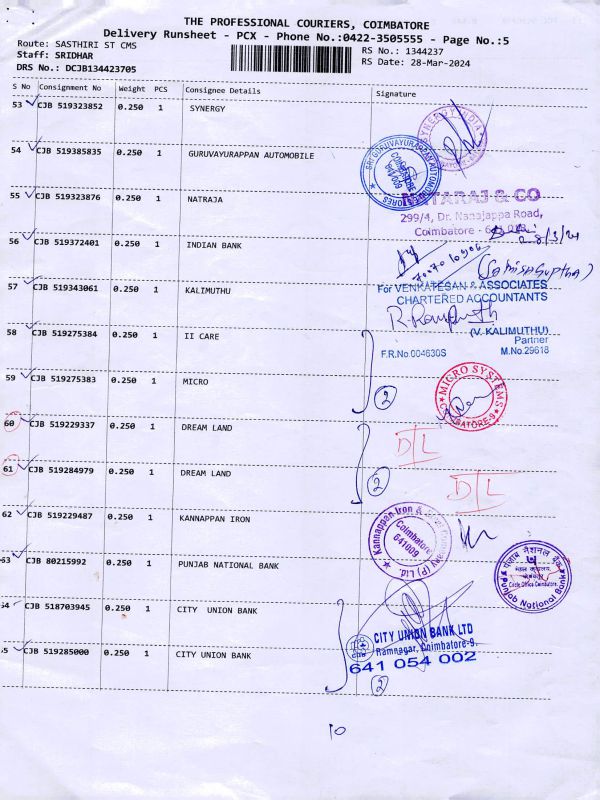 THE PROFESSIONAL COURIERS, COIMBATORE
Delivery Runsheet - PCX - Phone No.:0422-3505555 - Page No.:5
Route: SASTHIRI ST CMS
RS No.: 1344237
Staff: SRIDHAR
RS Date: 28-Mar-2024
DRS No.: DCJB134423705
S No Consignment No Weight PCS Consignee Details Signature
53 CJB 519323852 0.250 1 SYNERGY
54 CJB 519385835 0.250 1 GURUVAYURAPPAN AUTOMOBILE
SRI GURUVAYURAPPAN AUTOMOBILES
COIMBATORE
641 009
55 CJB 519323876 0.250 1 NATRAJA
NATARAJ & CO
299/4, Dr. Nanjappa Road,
Coimbatore -
56 CJB 519372401 0.250 1 INDIAN BANK
57 CJB 519343061 0.250 1 KALIMUTHU
For VENKATESAN & ASSOCIATES
CHARTERED ACCOUNTANTS
(V. KALIMUTHU)
Partner
F.R.No.004630S M.No.29618
58 CJB 519275384 0.250 1 II CARE
59 CJB 519275383 0.250 1 MICRO
2
MICRO SYSTEMS
60 CJB 519229337 0.250 1 DREAM LAND
D/L
61 CJB 519284979 0.250 1 DREAM LAND
2
D/L
62 CJB 519229487 0.250 1 KANNAPPAN IRON
Kannappan Iron &
(P) Ltd.
Coimbatore
641009
53 CJB 80215992 0.250 1 PUNJAB NATIONAL BANK
पंजाब नैशनल बैंक
Circle Office Coimbatore
Punjab National Bank
54 CJB 518703945 0.250 1 CITY UNION BANK
CITY UNION BANK LTD
Ramnagar, Coimbatore-9.
641 054 002
55 CJB 519285000 0.250 1 CITY UNION BANK
2
10